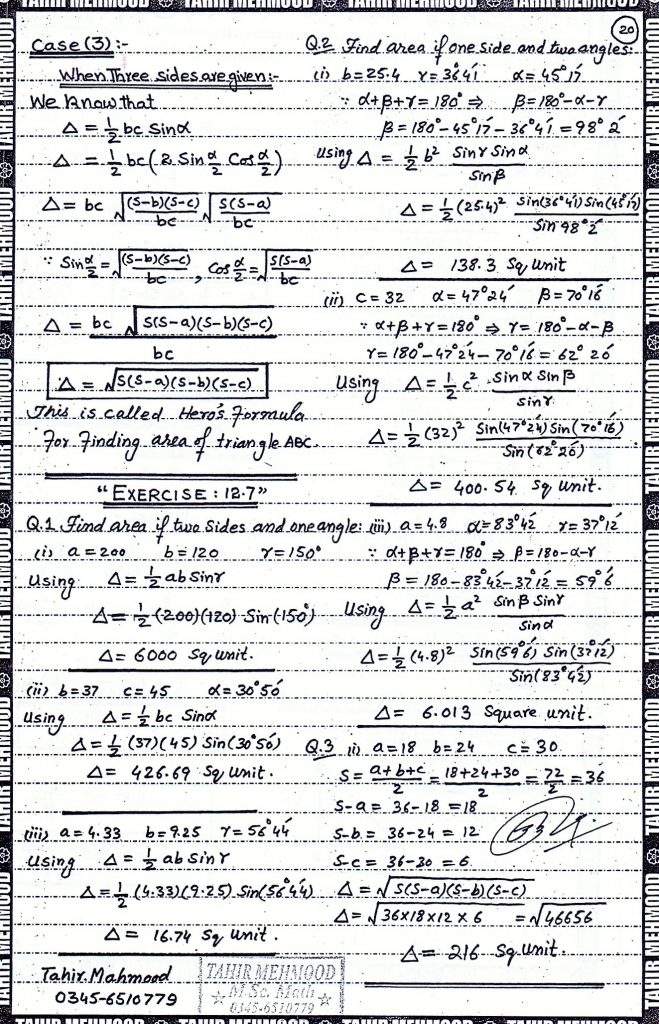 TAHIR MEHMOOD
20
Case (3) :-
When Three sides are given:-
We know that
Δ = 1/2 bc Sinα
Δ = 1/2 bc (2 Sin α/2 Cos α/2)
Δ = bc √((S-b)(S-c)/bc) √(S(S-a)/bc)
∵ Sin α/2 = √((S-b)(S-c)/bc) , Cos α/2 = √(S(S-a)/bc)
Δ = bc √(S(S-a)(S-b)(S-c)) / bc
Δ = √(S(S-a)(S-b)(S-c))
This is called Hero's Formula
For Finding area of triangle ABC.
"EXERCISE : 12.7"
Q.1 Find area if two sides and one angle:
(i) a = 200 b = 120 γ = 150°
Using Δ = 1/2 ab Sinγ
Δ = 1/2 (200)(120) Sin(150°)
Δ = 6000 Sq unit.
(ii) b = 37 c = 45 α = 30°50′
Using Δ = 1/2 bc Sinα
Δ = 1/2 (37)(45) Sin(30°50′)
Δ = 426.69 Sq unit.
(iii) a = 4.33 b = 9.25 γ = 56°44′
Using Δ = 1/2 ab Sinγ
Δ = 1/2 (4.33)(9.25) Sin(56°44′)
Δ = 16.74 Sq unit.
Tahir Mahmood
0345-6510779
TAHIR MEHMOOD
M.Sc. Math
0345-6510779
Q.2 Find area if one side and two angles:
(i) b = 25.4 γ = 36°41′ α = 45°17′
∵ α+β+γ = 180° ⇒ β = 180°-α-γ
β = 180°-45°17′-36°41′ = 98°2′
Using Δ = 1/2 b² Sinγ Sinα / Sinβ
Δ = 1/2 (25.4)² Sin(36°41′) Sin(45°17′) / Sin 98°2′
Δ = 138.3 Sq unit
(ii) C = 32 α = 47°24′ β = 70°16′
∵ α+β+γ = 180° ⇒ γ = 180°-α-β
γ = 180°-47°24′-70°16′ = 62°20′
Using Δ = 1/2 c² Sinα Sinβ / Sinγ
Δ = 1/2 (32)² Sin(47°24′) Sin(70°16′) / Sin(62°20′)
Δ = 400.54 Sq unit.
(iii) a = 4.8 α = 83°42′ γ = 37°12′
∵ α+β+γ = 180° ⇒ β = 180-α-γ
β = 180-83°42′-37°12′ = 59°6′
Using Δ = 1/2 a² Sinβ Sinγ / Sinα
Δ = 1/2 (4.8)² Sin(59°6′) Sin(37°12′) / Sin(83°42′)
Δ = 6.013 Square unit.
Q.3 (i) a = 18 b = 24 c = 30
S = a+b+c/2 = 18+24+30/2 = 72/2 = 36
S-a = 36-18 = 18
S-b = 36-24 = 12
S-c = 36-30 = 6
Δ = √(S(S-a)(S-b)(S-c))
Δ = √(36×18×12×6) = √46656
Δ = 216 Sq unit.